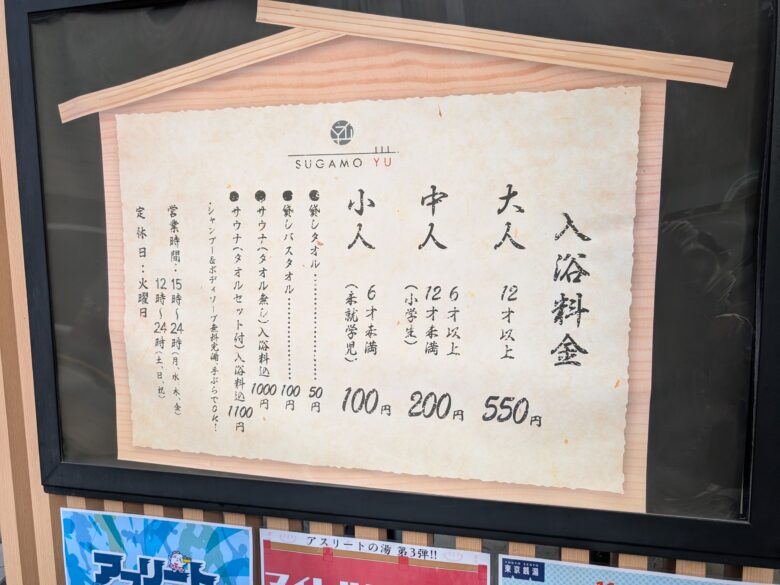 SUGAMO YU
入浴料金
大人 12才以上 550円
中人 6才以上 12才未満 (小学生) 200円
小人 6才未満 (未就学児) 100円
●貸しタオル…………………50円
●貸しバスタオル……………100円
●サウナ(タオル無し)入浴料込 1000円
●サウナ(タオルセット付)入浴料込 1100円
・シャンプー&ボディソープ無料完備 手ぶらでOK!
営業時間:15時〜24時(月、水、木、金)
12時〜24時(土、日、祝)
定休日:火曜日
アスリート
アスリートの湯 第3弾!!
東京銭湯